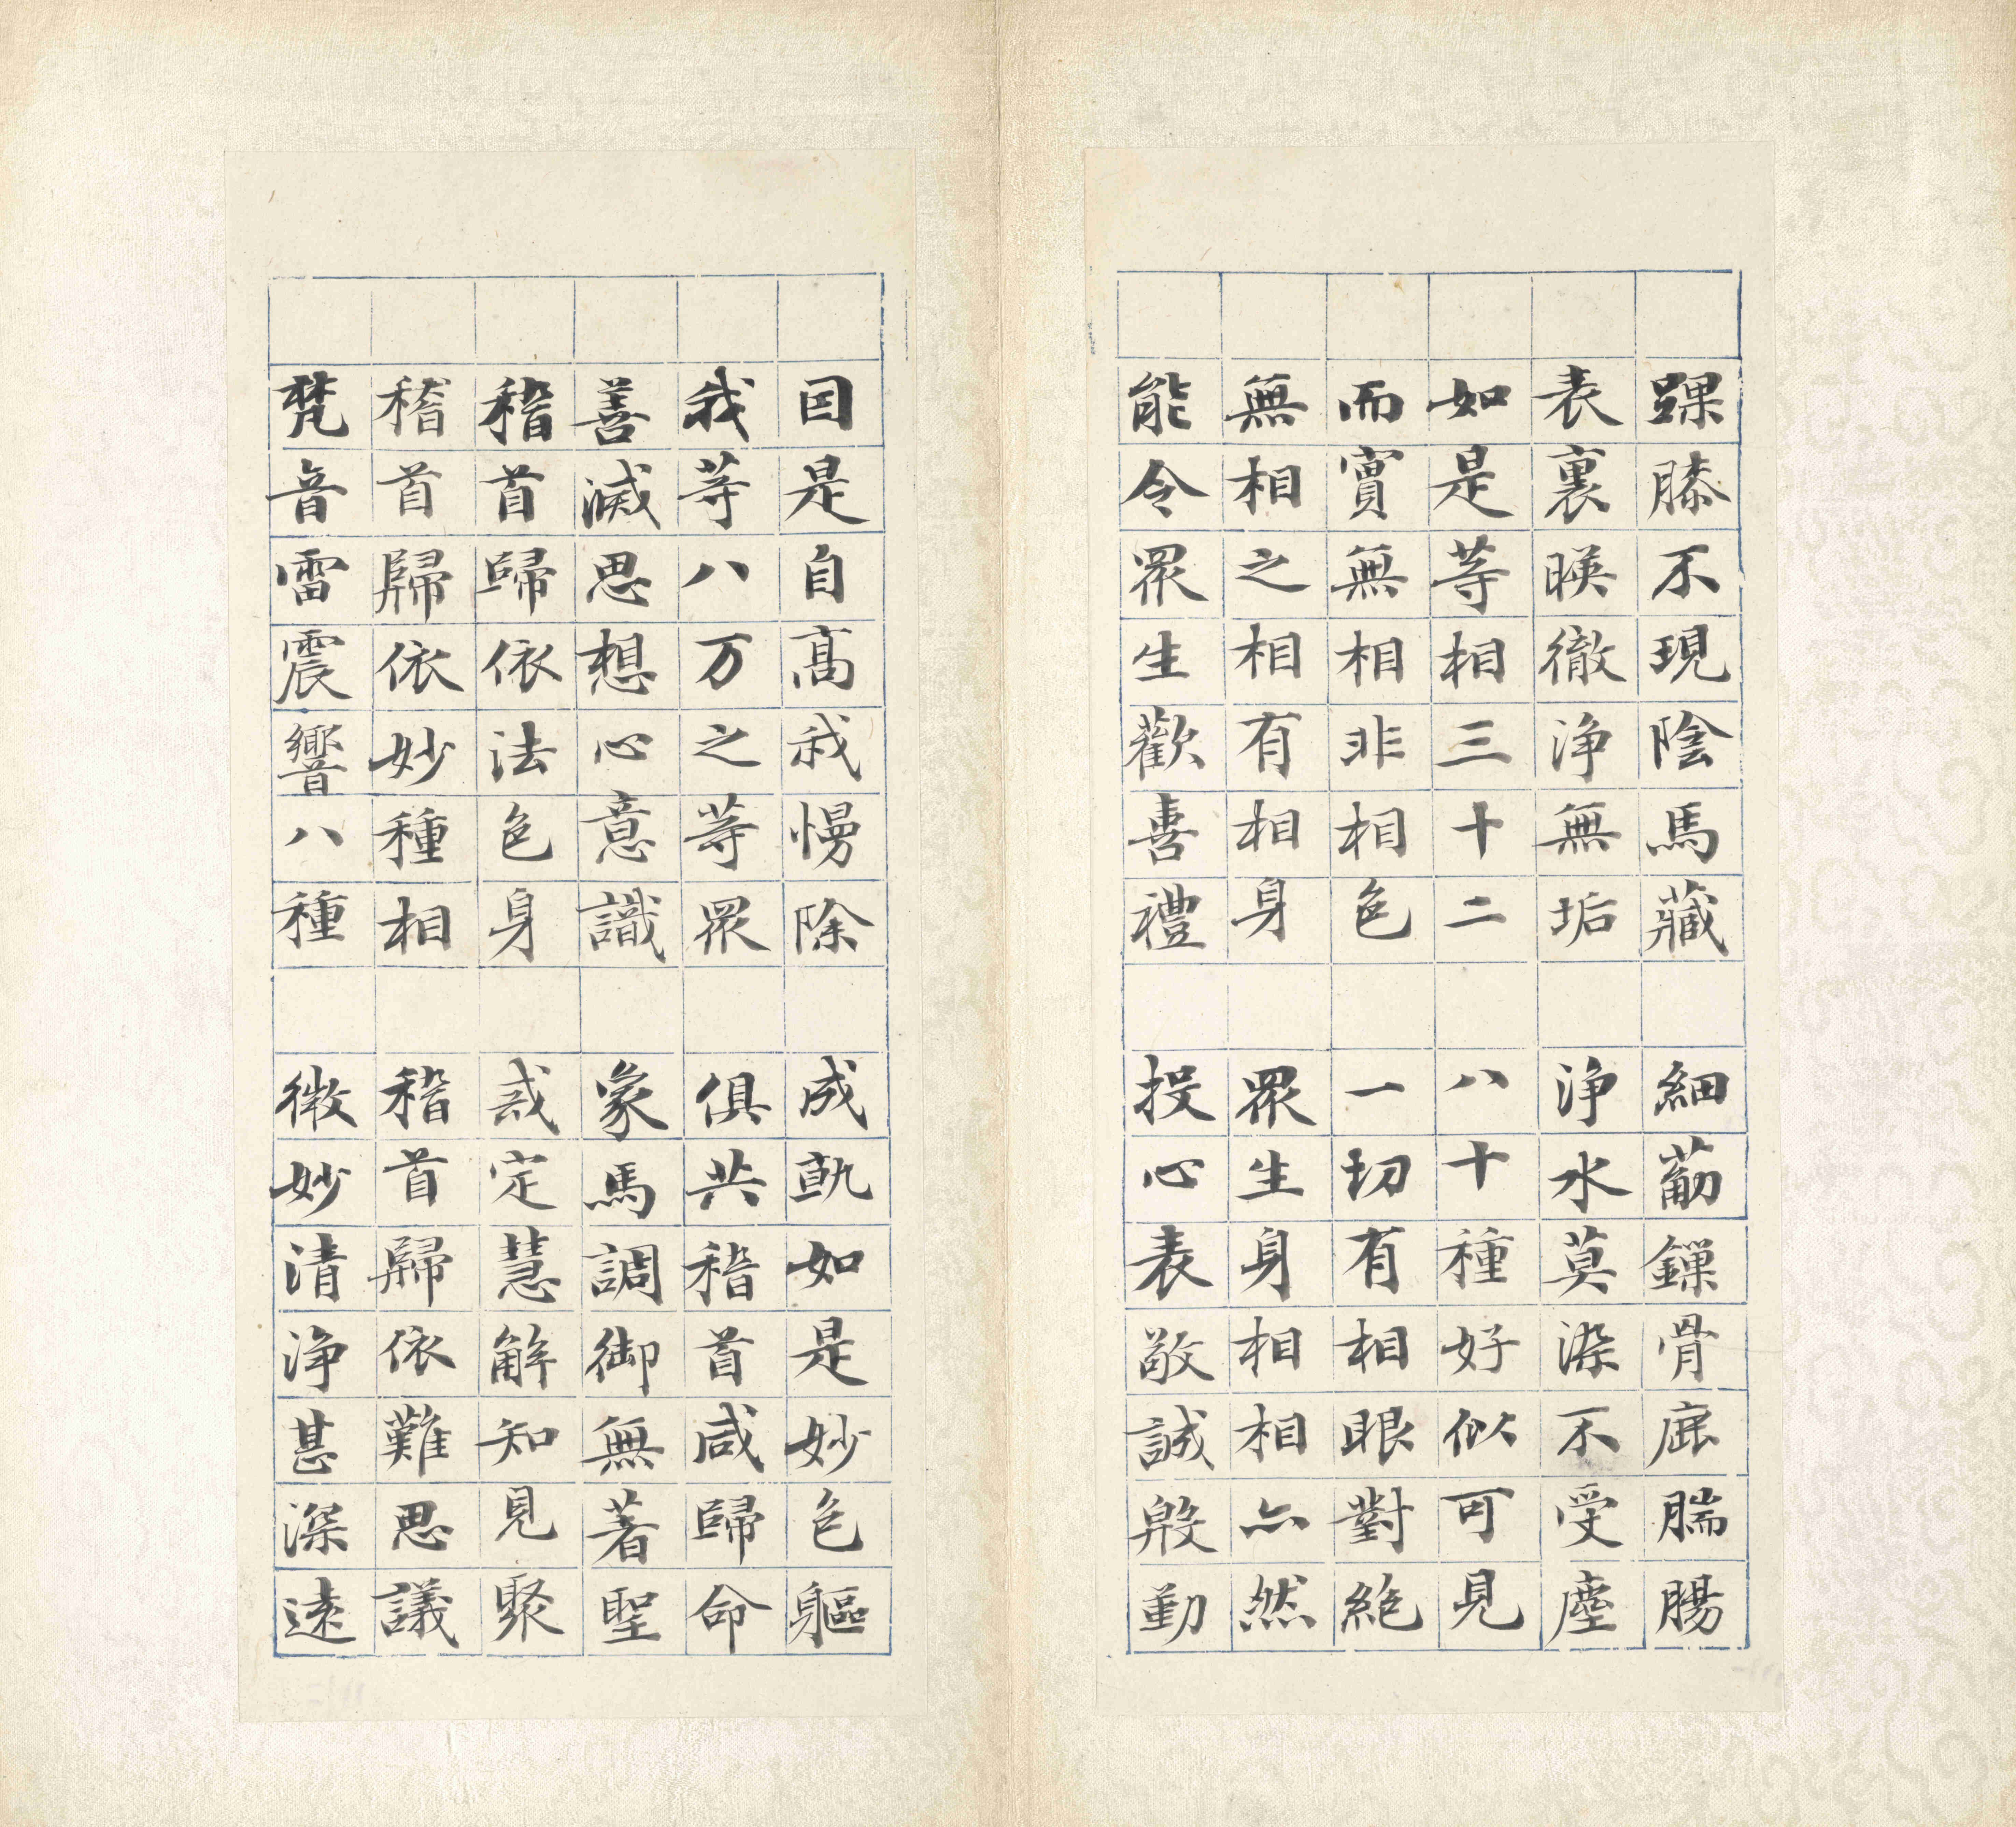 踝膝不現陰馬藏　細葋鏁骨𢈪腨腸
表裏暎徹浄無垢　浄水莫染不受塵
如是等相三十二　八十種好似可見
而實無相非相色　一切有相眼對絕
無相之相有相身　眾生身相相亦然
能令眾生歡喜禮　投心表敬誠慇勤
因是自高我慢除　成就如是妙色軀
我等八万之等眾　俱共稽首咸歸命
善滅思想心意識　象馬調御無著聖
稽首歸依法色身　戒定慧解知見聚
稽首歸依妙種相　稽首歸依難思議
梵音雷震響八種　微妙清浄甚深遠